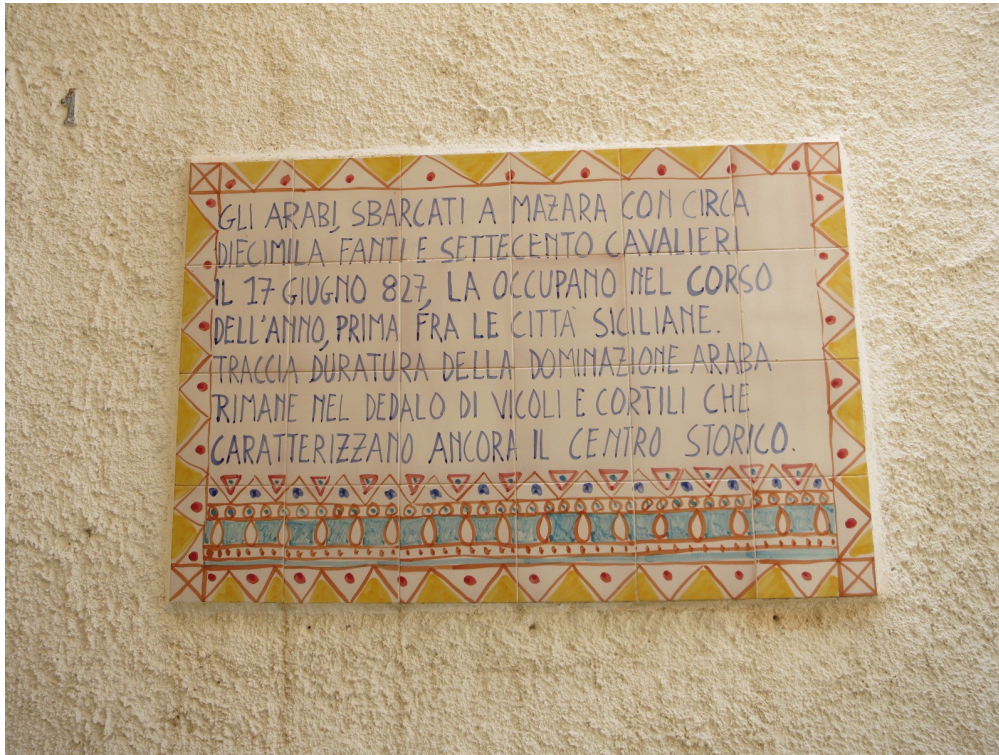 1
GLI ARABI, SBARCATI A MAZARA CON CIRCA
DIECIMILA FANTI E SETTECENTO CAVALIERI
IL 17 GIUGNO 827, LA OCCUPANO NEL CORSO
DELL'ANNO, PRIMA FRA LE CITTÀ SICILIANE.
TRACCIA DURATURA DELLA DOMINAZIONE ARABA
RIMANE NEL DEDALO DI VICOLI E CORTILI CHE
CARATTERIZZANO ANCORA IL CENTRO STORICO.